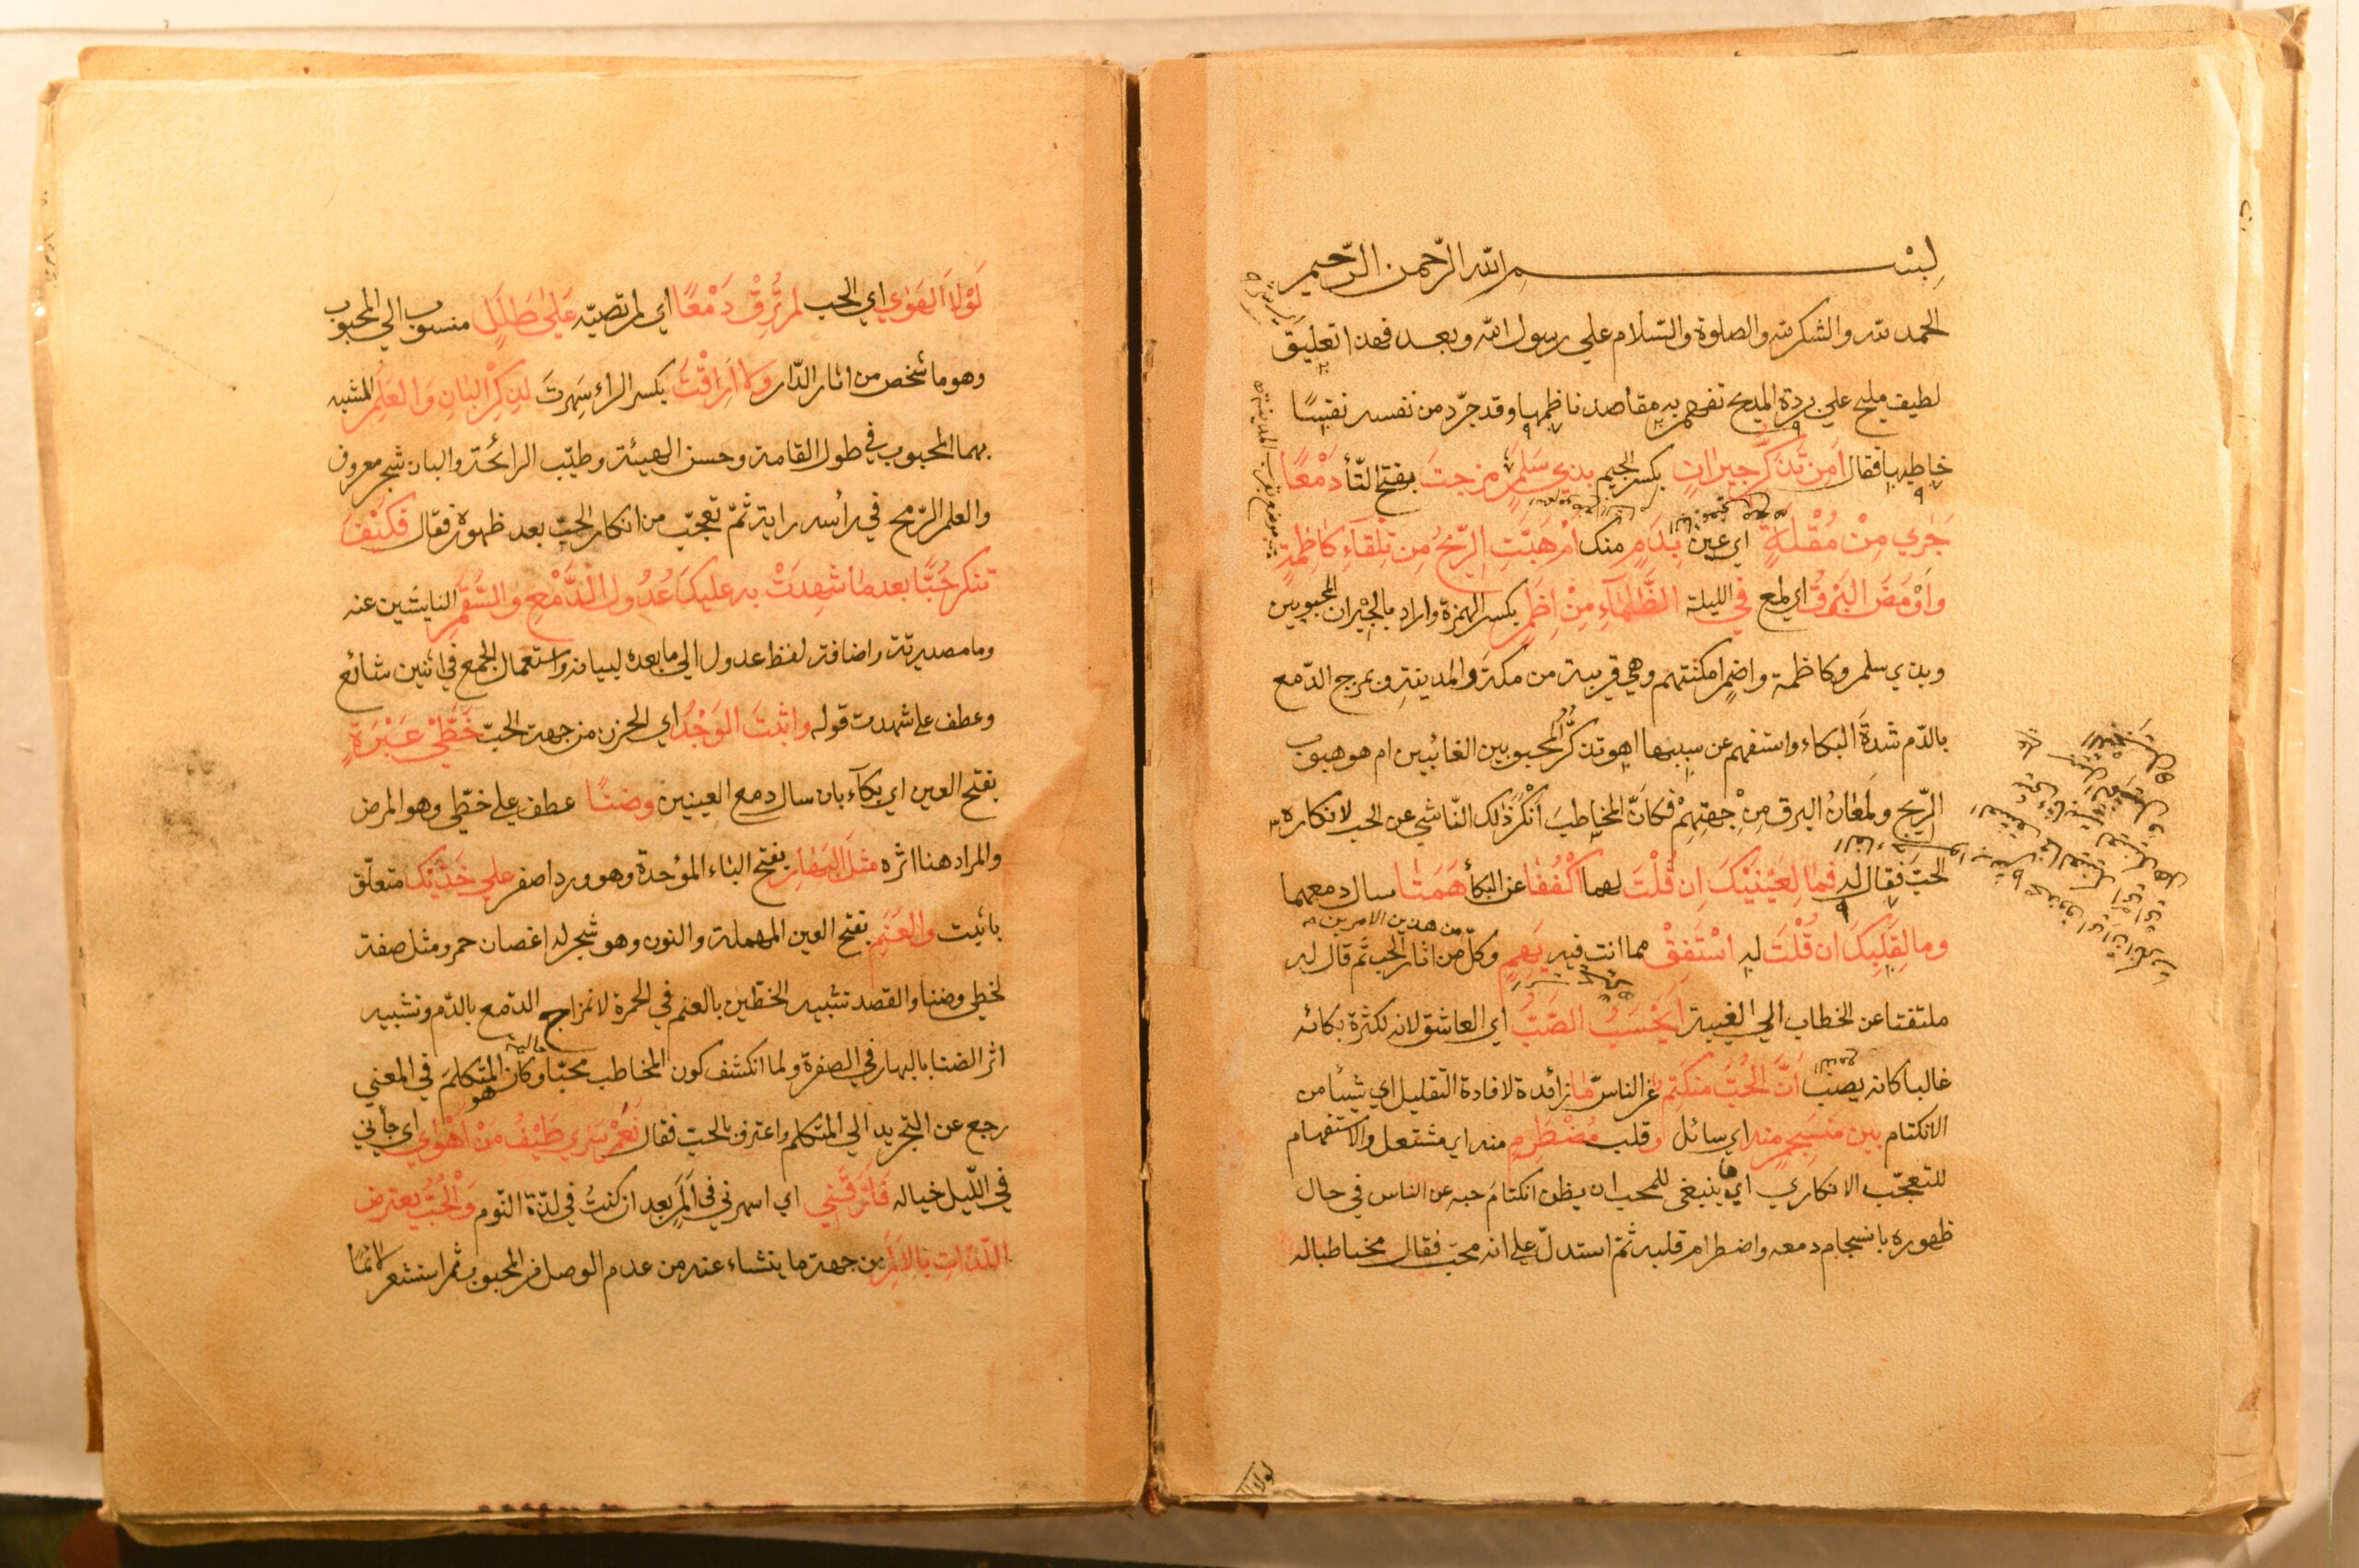 بسم الله الرّحمن الرّحيم
الحمد لله والشكر لله والصلوة والسّلام علي رسول الله وبعد فهذا تعليق
لطيف مليح علي بردة المديح تفهم به مقاصد ناظمها وقد جرّد من نفسه نفيسًا
خاطبها فقال اَمِن تَذَكُّرِ جيرانٍ بكسر الجيم بذي سَلَمٍ مزجتَ بفتح التّأ دَمْعًا
جَرٰي مِنْ مُقْلَةٍ اي عين بِدَمٍ منك اَمْ هَبَّتِ الرّيحُ مِن تِلْقَاءِ كَاظِمَةٍ
وَاَوْمَضَ البَرْقُ اي لمع في الليلة الظَّلْمَآءِ مِنْ اِضَمِ بكسر الهمزة واراد بالجيْران المحبوبين
وبذي سلم وكاظمة واضم امكنتهم وهي قريبة من مكة والمدينة وبمزج الدّمع
بالدّم شدةَ البكاء واستفهم عن سببها اهو تذكّرُ المحبوبين الغائبين ام هو هبوب
الرّيح ولمعانُ البرق مِنْ جهتِهِمْ فكانَّ المخاطبَ اَنْكَرَ ذٰلك النّاشي عن الحب لانكاره
الحبّ فقال له فمٰا لِعَيْنَيْكَ اِن قُلْتَ لهما اكْفُفٰا عن البكأ هَمَتٰا سال دمعهما
وما لِقَلْبِكَ ان قُلْتَ له اسْتَفِقْ مما انت فيه يَهِمِ وكلٌّ من هذين الامرين من اثار الحب ثم قال له
ملتفتا عن الخطاب الي الغيبة اَيَحْسَبُ الصَّبُّ اي العاشق لانه لكثرة بكائه
غالبا كانه يصب الدمع اَنَّ الحُبَّ منكَتِم عن الناس مٰا زائدة لافادة التقليل اي شيئا من
الانكتام بين منسَجِمٍ منه اي سائل وقلب مُضْطَرِمِ منه اي مشتعل والاستفهام
للتعجّب الانكاري اي ما ينبغي للمحب ان يظن انكتامَ حبه عن الناس في حال
ظهوره بانسجام دمعه واضطرام قلبه ثمّ استدلّ علي انه محبّ فقال مخاطبا له
لولا ا
لَوْلاَ الهَوٰي اي الحب لم تُرِقْ دَمْعًا اي لم تصبّه عَلٰي طَلَلٍ منسوب الي المحبوب
وهو ما شخص من اثار الدّار وَلاَ اَرِقْتَ بكسر الراء سَهِرتَ لِذِكْرِ البَانِ وَالعَلَمِ المشبه
بهما المحبوب في طول القامة وحسن الهيئة وطيّب الرائحة والبان شجر معروف
والعلم الرّمح في رأسه راية ثمّ تعجّب من انكار الحبّ بعد ظهوره فقال فكَيْفَ
تنكر حُبًّا بعد مٰا شهِدَتْ به عليكَ عُدُولُ الدَّمْعِ وَالسَّقَمِ النايشين عنه
وما مصدرية واضافة لفظ عدول الي ما بعده لبيانه واستعمال الجمع في اثنين شائع
وعطف علي شهدت قوله واثبَتَ الوَجْدُ اي الحزن من جهة الحبّ خَطَّيْ عَبْرَةٍ
بفتح العين اي بكآء بان سال دمع العينين وضنًا عطف علي خطّي وهو المرض
والمراد هنا اثره مثلَ البَهٰارِ بفتح الباء الموحدة وهو ورد اصفر علي خَدَّيْكَ متعلّق
باثبت وَالعَنَمِ بفتح العين المهملة والنون وهو شجر له اغصان حمر ومثل صفة
لخطي وضنا والقصد تشبيه الخطّين بالعنم في الحمرة لانمزاج الدّمع بالدّم وتشبيه
اثر الضنا بالبهار في الصفرة ولما انكشف كون المخاطب محبّا وكان المتكلمَ في المعني
هو
رجع عن التجريد الي المتكلم واعترف بالحبّ فقال نَعَمْ سَرٰي طَيْفُ مَنْ اَهْوٰي اي جأني
في اللّيل خياله فَاَرَّقَنِي اي اسهرني في اَلَمٍ بعد ان كنتُ في لذّة النّوم وَالْحُبُّ يعترض
اللّذّاتِ بِالاَلَمِ من جهة ما ينشاء عنه من عدم الوصل من المحبوب ثم استشعر لائمًا